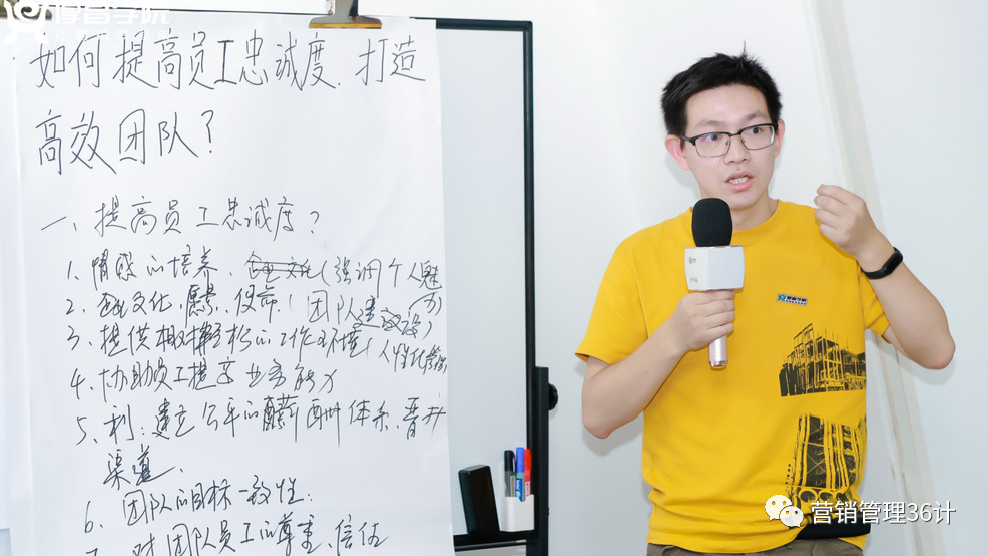 厚昌学院
如何提高员工忠诚度,打造
高效团队？
一、提高员工忠诚度？
1、情感的培养、(强调个人魅力)
2、企业文化,愿景,使命(团队建设)
3、提供相对轻松的工作环境(人性化管理)
4、协助员工提高业务能力
5、利:建立公平的薪酬体系、晋升
渠道、
6、团队的目标一致性:
7、对团队员工的尊重、信任
厚昌学院
营销管理36计